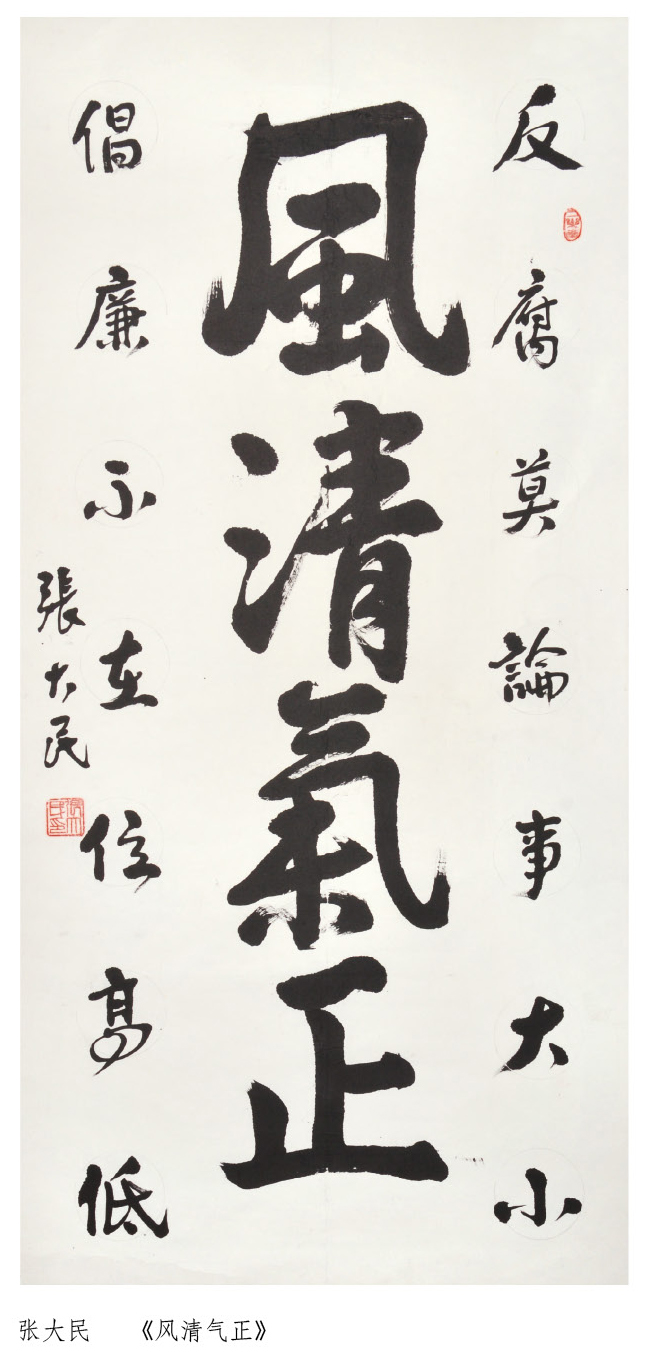 反腐莫論事大小
風清氣正
倡廉不在位高低
張大民
张大民 《风清气正》